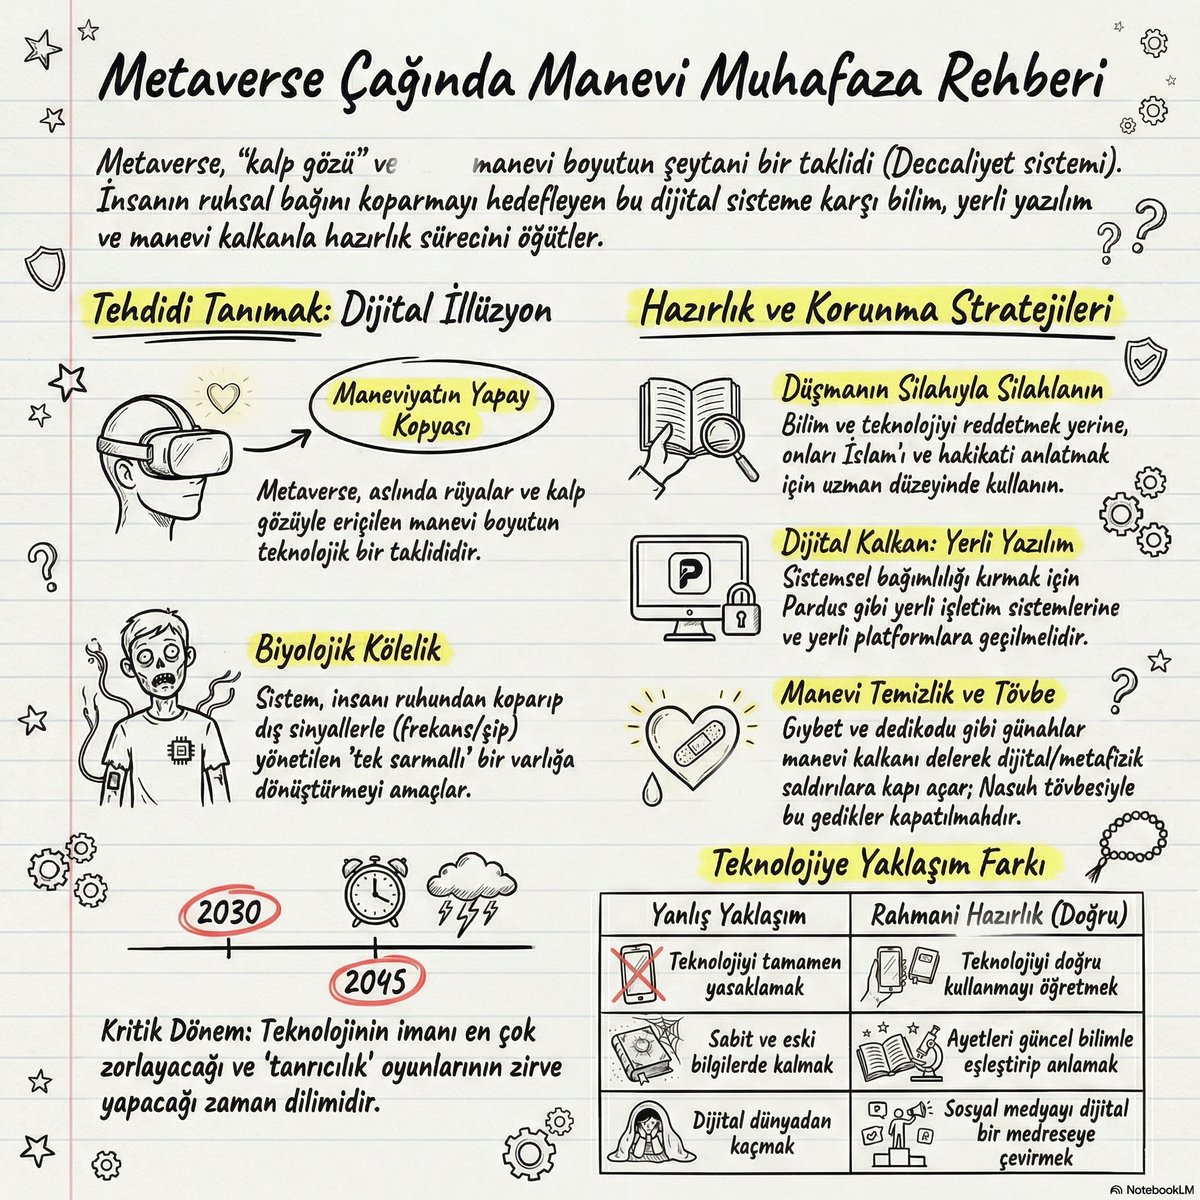 Metaverse Çağında Manevi Muhafaza Rehberi
Metaverse, “kalp gözü” ve manevi boyutun şeytani bir taklidi (Deccaliyet sistemi).
İnsanın ruhsal bağını koparmayı hedefleyen bu dijital sisteme karşı bilim, yerli yazılım
ve manevi kalkanla hazırlık sürecini öğütler.
Tehdidi Tanımak: Dijital İllüzyon
Maneviyatın Yapay
Kopyası
Metaverse, aslında rüyalar ve kalp
gözüyle eriçilen manevi boyutun
teknolojik bir taklididir.
Biyolojik Kölelik
Sistem, insanı ruhundan koparıp
dış sinyallerle (frekans/şip)
yönetilen 'tek sarmallı' bir varlığa
dönüştürmeyi amaçlar.
2030
2045
Kritik Dönem: Teknolojinin imanı en çok
zorlayacağı ve 'tanrıcılık' oyunlarının zirve
yapacağı zaman dilimidir.
Hazırlık ve Korunma Stratejileri
Düşmanın Silahıyla Silahlanın
Bilim ve teknolojiyi reddetmek yerine,
onları İslam'ı ve hakikati anlatmak
için uzman düzeyinde kullanın.
P
Dijital Kalkan: Yerli Yazılım
Sistemsel bağımlılığı kırmak için
Pardus gibi yerli işletim sistemlerine
ve yerli platformlara geçilmelidir.
Manevi Temizlik ve Tövbe
Gıybet ve dedikodu gibi günahlar
manevi kalkanı delerek dijital/metafizik
saldırılara kapı açar; Nasuh tövbesiyle
bu gedikler kapatılmahdır.
Teknolojiye Yaklaşım Farkı
Yanlış Yaklaşım
Rahmani Hazırlık (Doğru)
Teknolojiyi tamamen
yasaklamak
Teknolojiyi doğru
kullanmayı öğretmek
Sabit ve eski
bilgilerde kalmak
Ayetleri güncel bilimle
eşleştirip anlamak
Dijital dünyadan
kaçmak
Sosyal medyayı dijital
bir medreseye
çevirmek
NotebookLM